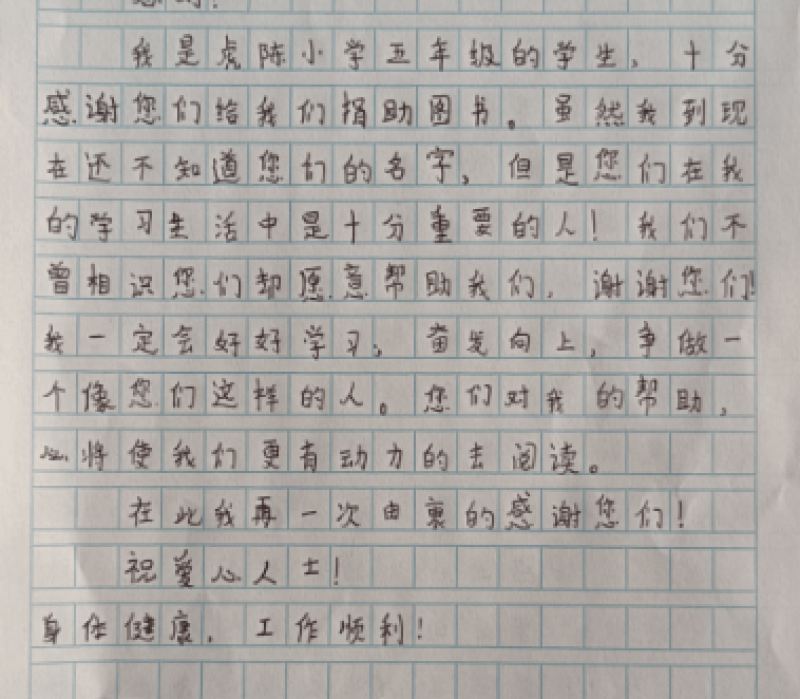 我是虎陈小学五年级的学生，十分
感谢您们给我们捐助图书。虽然我到现
在还不知道您们的名字，但是您们在我
的学习生活中是十分重要的人！我们不
曾相识您们却愿意帮助我们，谢谢您们！
我一定会好好学习，奋发向上，争做一
个像您们这样的人。您们对我的帮助，
必将使我们更有动力的去阅读。
在此我再一次由衷的感谢您们！
祝爱心人士！
身体健康，工作顺利！